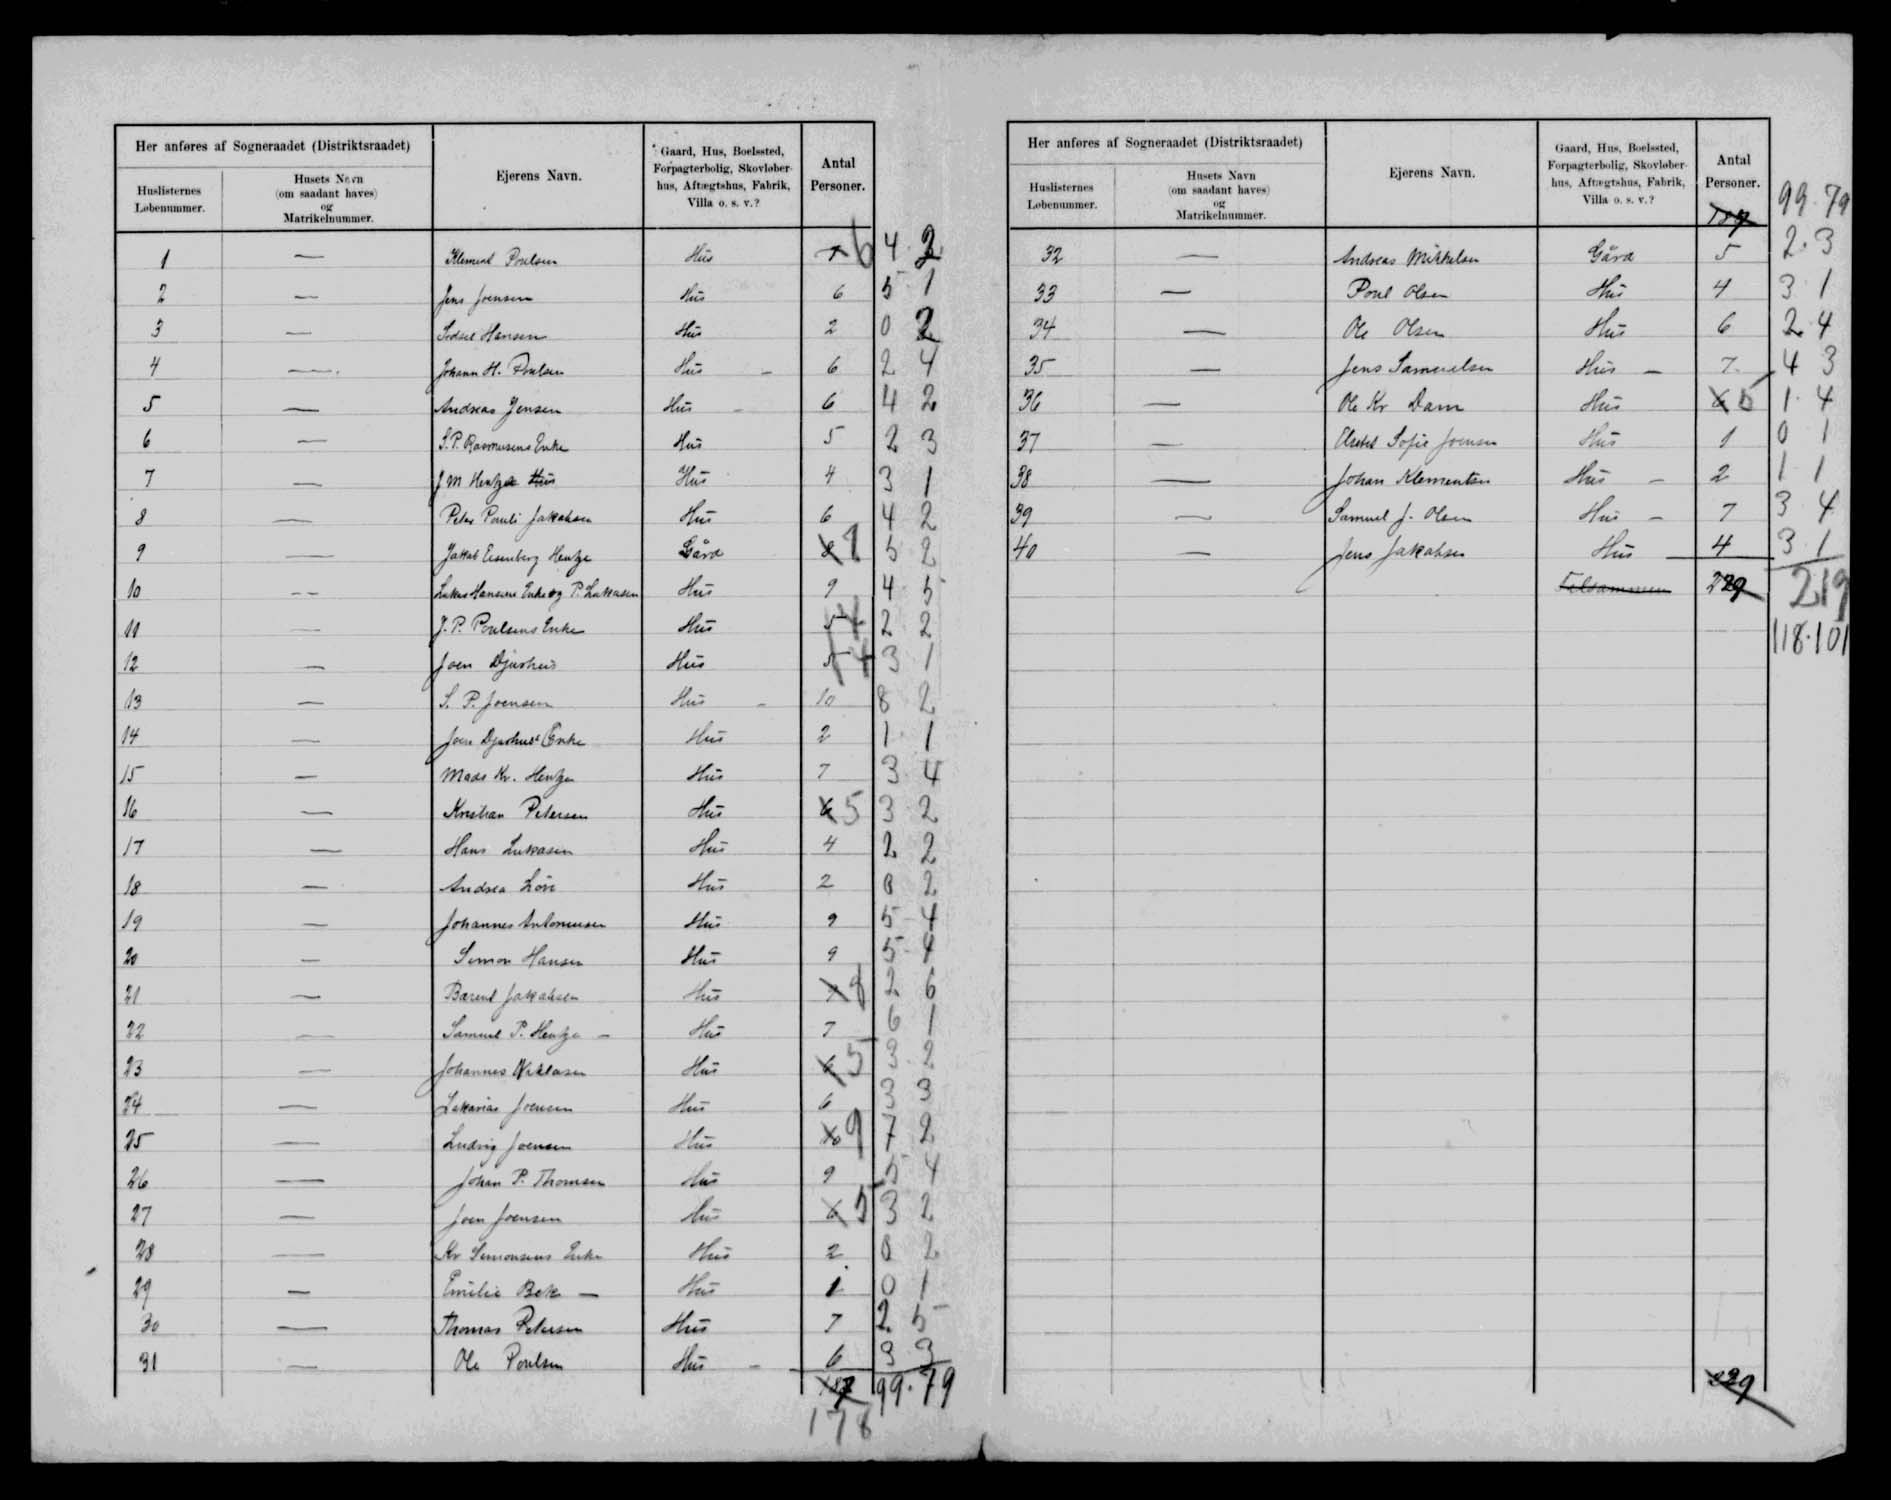 Her anføres af Sogneraadet (Distriktsraadet)
Huslisternes Løbenummer.
Husets Navn (om saadant haves) og Matrikelnummer.
Ejerens Navn.
Gaard, Hus, Boelssted, Forpagterbolig, Skovløberhus, Aftægtshus, Fabrik, Villa o. s. v.?
Antal Personer.
1 — Klement Poulsen Hus 7 6 4 2
2 — Jens Joensen Hus 6 5 1
3 — Hansen Hus 2 0 2
4 — Johann H. Poulsen Hus – 6 2 4
5 — Andreas Jensen Hus – 6 4 2
6 — S. P. Rasmusens Enke Hus 5 2 3
7 — J M Hentze Hus Hus 4 3 1
8 — Peter Pauli Jakobsen Hus 6 4 2
9 — Jakob Eisenberg Hentze Gård 8 7 5 2
10 — Lukas Hansens Enke og P. Lukasen Hus 9 4 5
11 — J. P. Poulsens Enke Hus 5 4 2 2
12 — Joen Djurhuus Hus 5 4 3 1
13 — S. P. Joensen Hus – 10 8 2
14 — Joen Djurhuus Enke Hus 2 1 1
15 — Mads Kr. Hentze Hus 7 3 4
16 — Kristian Petersen Hus 6 5 3 2
17 — Hans Lukasen Hus 4 2 2
18 — Andrea Hus 2 0 2
19 — Johannes Antoniusen Hus 9 5 4
20 — Simon Hansen Hus 9 5 4
21 — Barent Jakobsen Hus 8 2 6
22 — Samuel P. Hentze – Hus 7 6 1
23 — Johannes Niklasen Hus 6 5 3 2
24 — Zakarias Joensen Hus 6 3 3
25 — Ludvig Joensen Hus 10 9 7 2
26 — Johan P. Thomsen Hus 9 5 4
27 — Joen Joensen Hus 6 5 3 2
28 — Kr Simonsens Enke Hus 2 0 2
29 — Emilie Bek — Hus 1 0 1
30 — Thomas Petersen Hus 7 2 5
31 — Ole Poulsen Hus – 6 3 3
187 99.79
178
Her anføres af Sogneraadet (Distriktsraadet)
Huslisternes Løbenummer.
Husets Navn (om saadant haves) og Matrikelnummer.
Ejerens Navn.
Gaard, Hus, Boelssted, Forpagterbolig, Skovløberhus, Aftægtshus, Fabrik, Villa o. s. v.?
Antal Personer.
187 99.79
32 — Andreas Mikkelsen Gård 5 2.3
33 — Poul Olsen Hus 4 3 1
34 — Ole Olsen Hus 6 2 4
35 — Jens Samuelsen Hus – 7 4 3
36 — Ole Kr Dam Hus 6 5 1.4
37 — Elsebet Sofie Joensen Hus 1 0 1
38 — Johan Klementsen Hus – 2 1 1
39 — Samuel J. Olsen Hus – 7 3 4
40 — Jens Jakobsen Hus 4 3.1
Tilsammen 229 219
118.101
229